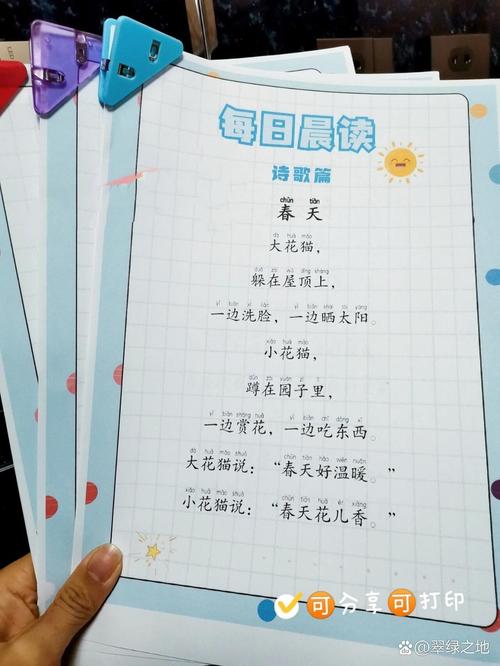 每日晨读
诗歌篇
chūn tiān
春 天
dà huā māo
大花猫，
duǒ zài wū dǐng shàng
躲在屋顶上，
yì biān xǐ liǎn yì biān shài tài yáng
一边洗脸，一边晒太阳。
xiǎo huā māo
小花猫，
dūn zài yuán zi lǐ
蹲在园子里，
yì biān shǎng huā yì biān chī dōng xi
一边赏花，一边吃东西。
dà huā māo shuō chūn tiān hǎo wēn nuǎn
大花猫说：“春天好温暖。”
xiǎo huā māo shuō chūn tiān huā ér xiāng
小花猫说：“春天花儿香。”
可分享可打印
@翠绿之地